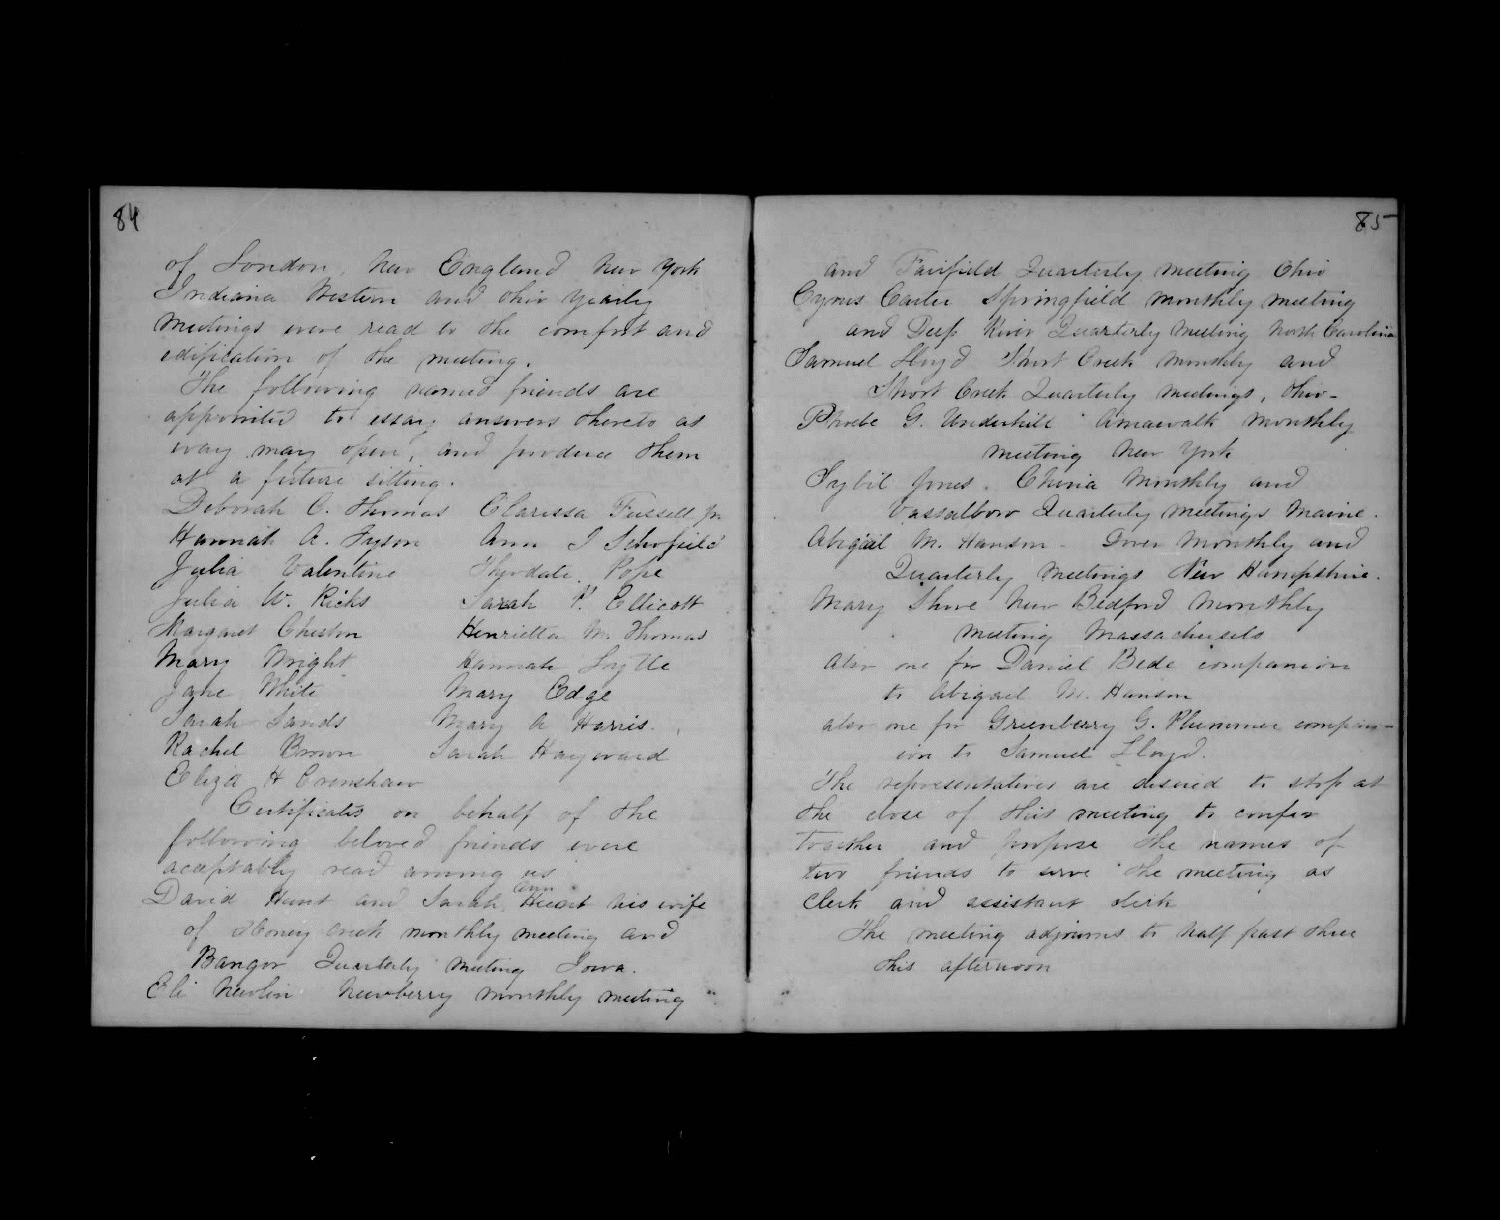 84
of London, New England New York
Indiana Western and Ohio Yearly
Meetings were read to the comfort and
edification of the meeting.
The following named friends are
appointed to essay answers thereto as
way may open, and produce them
at a future sitting.
Deborah C. Thomas Clarissa Fussell Jr
Hannah A. Tyson Ann T Schofield
Julia Valentine Theodate Pope
Julia W. Ricks Sarah P. Ellicott
Margaret Cheston Henrietta M. Thomas
Mary Wright Hannah Lytle
Jane White Mary Edge
Sarah Sands Mary A Harris.
Rachel Brown Sarah Hayward
Eliza H Crenshaw
Certificates on behalf of the
following beloved friends were
acceptably read among us
David Hunt and Sarah Ann Hunt his wife
of Honey Creek monthly meeting and
Bangor Quarterly Meeting Iowa.
Eli Newlin Newberry monthly meeting
85
and Fairfield Quarterly meeting Ohio
Cyrus Carter Springfield monthly meeting
and Deep River Quarterly Meeting North Carolina
Samuel Lloyd Short Creek monthly and
Short Creek Quarterly meetings, Ohio-
Phoebe G. Underhill Amawalk monthly
meeting New York
Sybil Jones. China Monthly and
Vassalboro Quarterly meetings Maine.
Abigail M. Hanson - Dover Monthly and
Quarterly Meetings New Hampshire.
Mary Shove New Bedford monthly
meeting Massachusets
also one for Daniel Bede companion
to Abigael M. Hanson
also one for Greenberry G. Plummer compan-
ion to Samuel Lloyd.
The representatives are desired to stop at
the close of this meeting to confer
together and propose the names of
two friends to serve the meeting as
Clerk and assistant clerk
The meeting adjourns to half past three
this afternoon